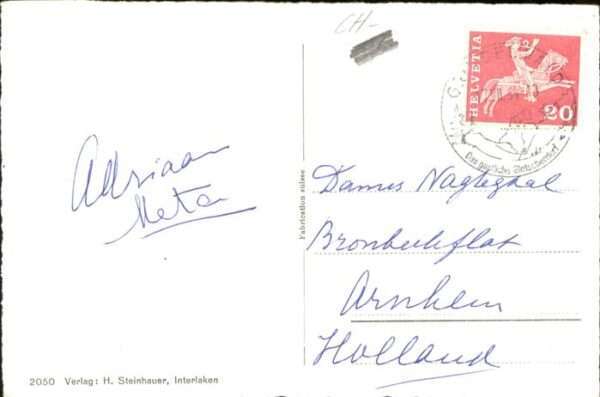 CH-
HELVETIA
20
Adriaan
Meta
Fabrication suisse
Dames Nagtegaal
Bronbeekflat
Arnhem
Holland
2050 Verlag: H. Steinhauer, Interlaken